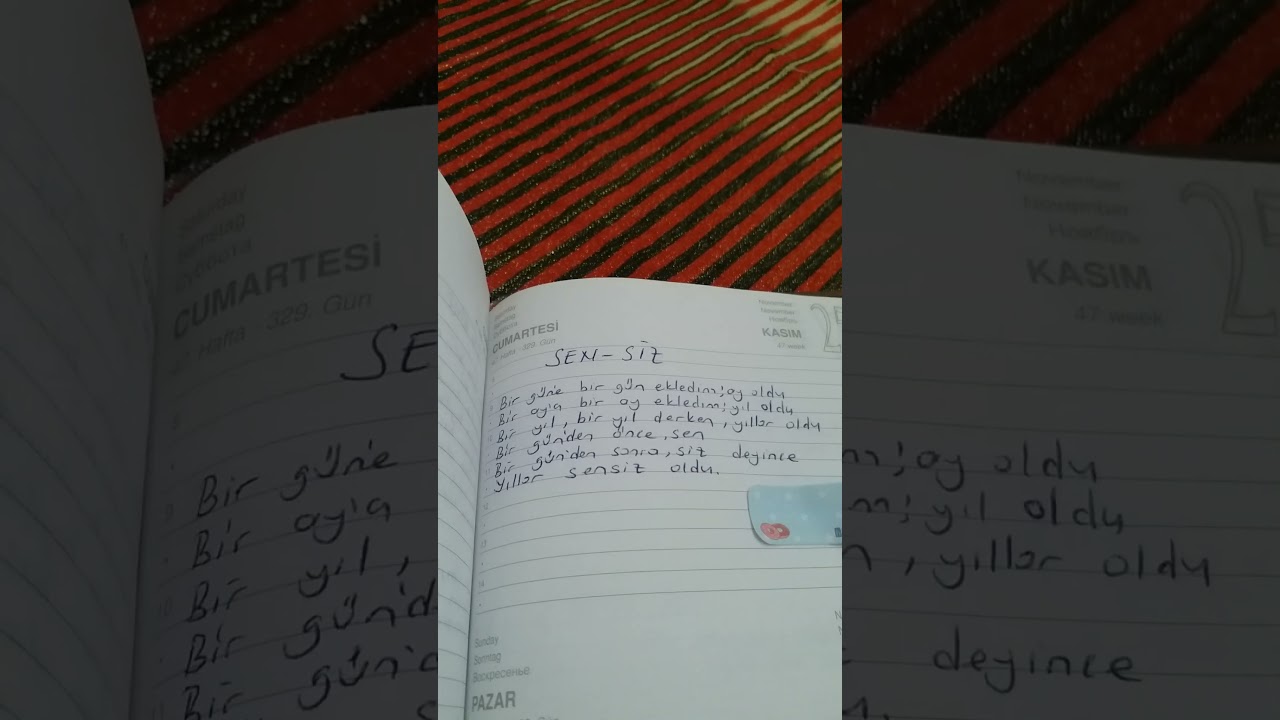 Saturday
Samstag
Суббота
CUMARTESİ
Hafta · 329. Gün
November
November
Ноябрь
KASIM
47 week
SEN-SİZ
Bir gün'e bir gün ekledim; ay oldu
Bir ay'a bir ay ekledim; yıl oldu
Bir yıl, bir yıl derken, yıllar oldu
Bir gün'den önce, sen
Bir gün'den sonra, siz deyince
yıllar sensiz oldu.
Sunday
Sonntag
Воскресенье
PAZAR